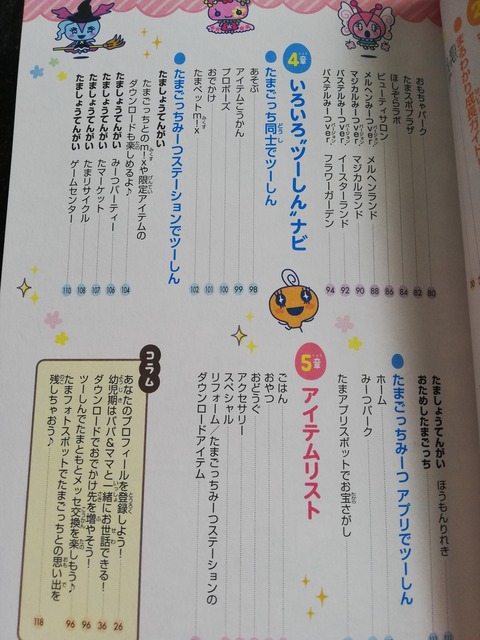 おもちゃパーク 80
たまスポプラザ 82
ほしぞらラボ 84
ビューティサロン 86
メルヘンみーつver メルヘンランド 88
マジカルみーつver マジカルランド 90
パステルみーつver イースターランド 92
パステルみーつver フラワーガーデン 94
4章 いろいろ"ツーしん"ナビ
たまごっち同士でツーしん
あそぶ 98
アイテムこうかん 99
プロポーズ 100
おでかけ 101
たまペットmix 102
たまごっちみーつステーションでツーしん
たまごっちとのmixや限定アイテムの
ダウンロードも楽しめるよ♪ 104
たましょうてんがい みーつパーティー 106
たましょうてんがい たマーケット 107
たましょうてんがい たまリサイクル 108
たましょうてんがい ゲームセンター 110
たましょうてんがい ほうもんりれき
おためしたまごっち
たまごっちみーつ アプリでツーしん
ホーム
みーつパーク
たまアプリスポットでお宝さがし
5章 アイテムリスト
ごはん
おやつ
おどうぐ
アクセサリー
スペシャル
リフォーム/たまごっちみーつステーションの
ダウンロードアイテム
コラム
あなたのプロフィールを登録しよう! 26
幼児期はパパ&ママと一緒にお世話できる! 36
ダウンロードでおでかけ先を増やそう! 96
ツーしんでたまともとメッセ交換を楽しもう♪ 96
たまフォトスポットでたまごっちとの思い出を
残しちゃおう♪ 118